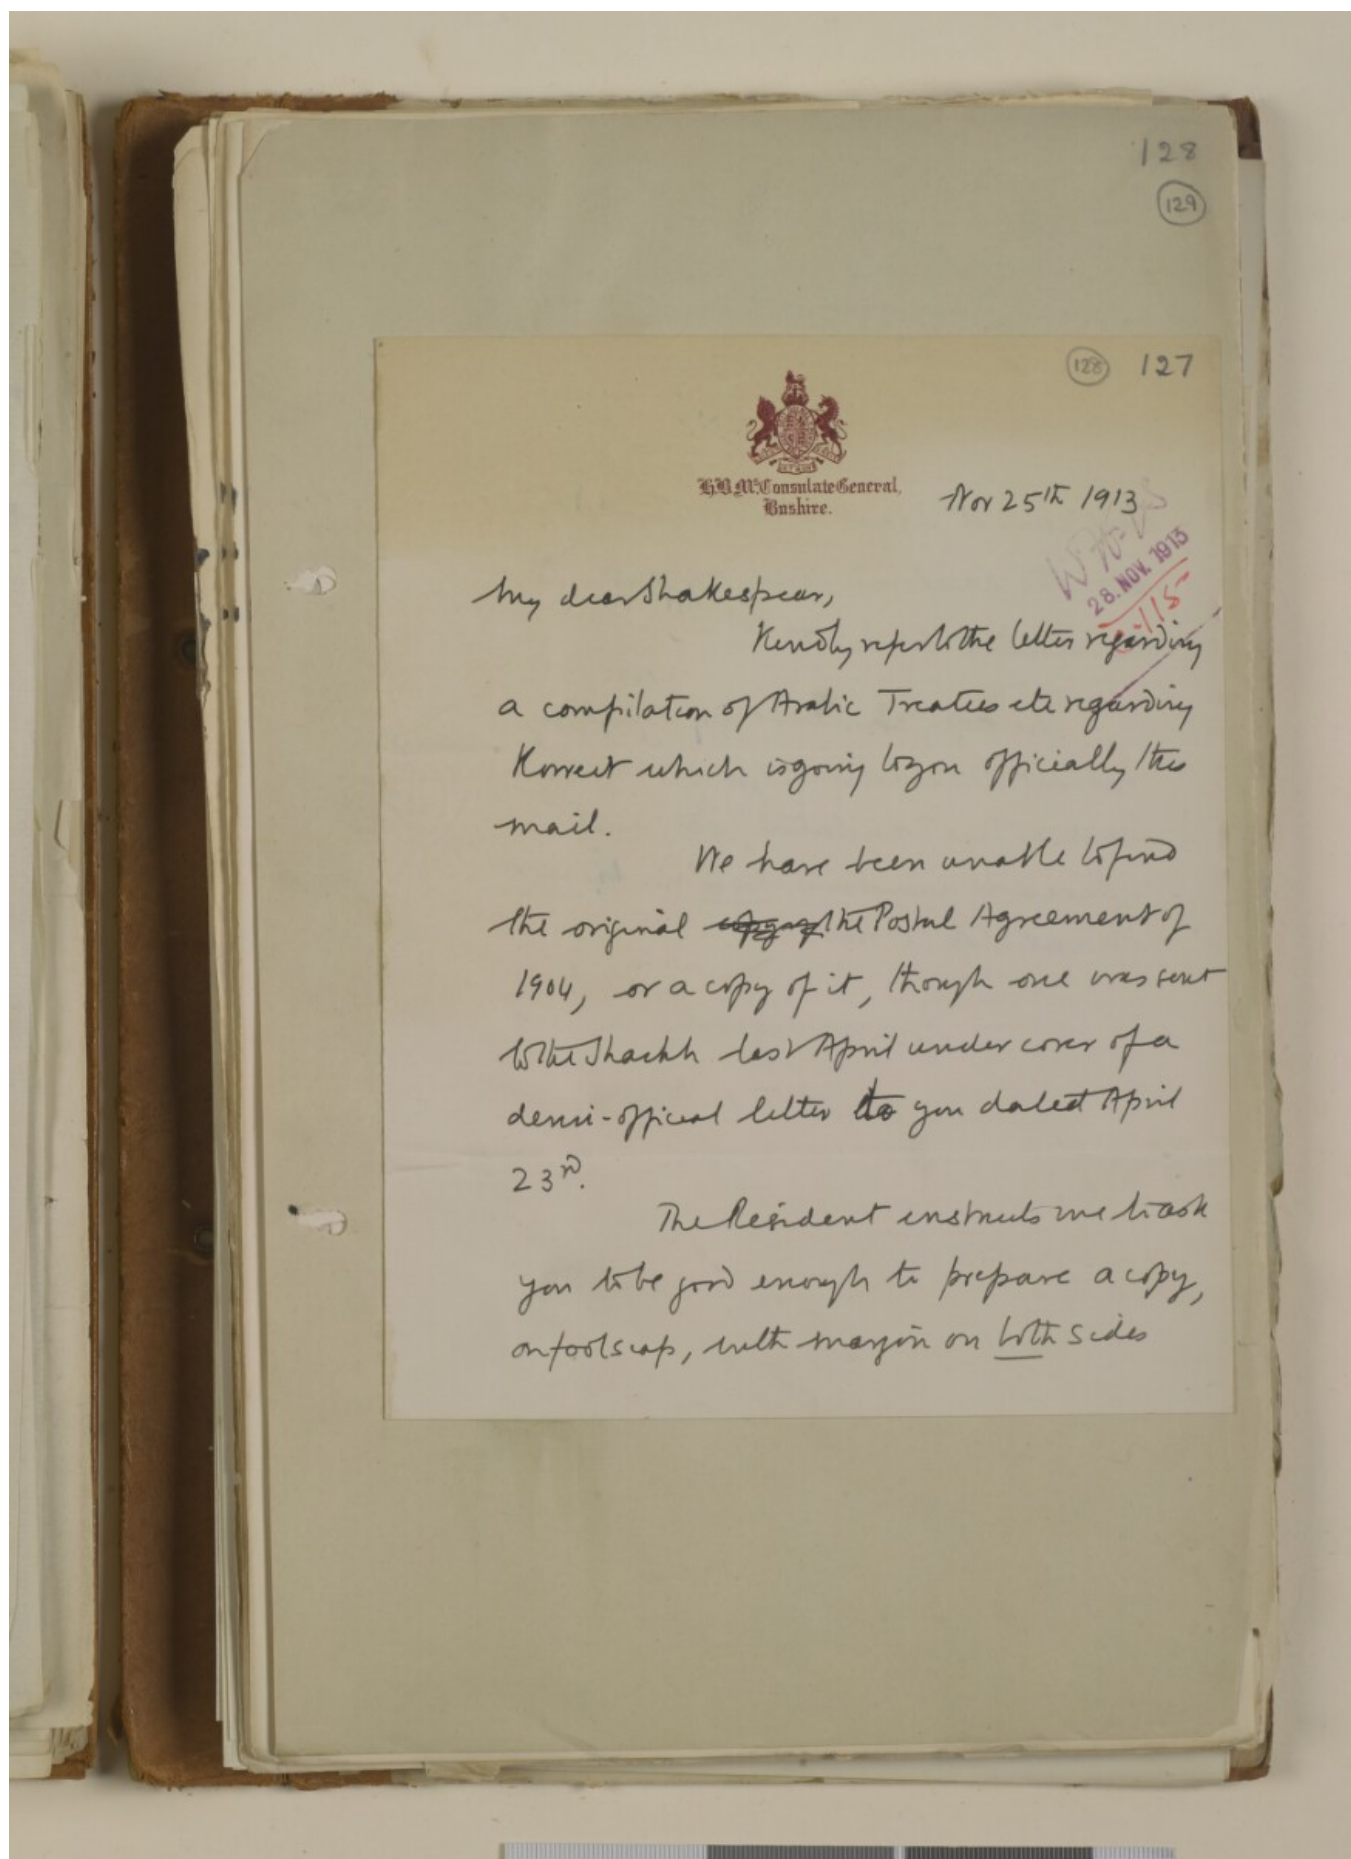 128
129
128 127
H.B.M's Consulate General,
Bushire.
Nov 25th 1913
28. NOV. 1913
My dear Shakespear,
Kindly refer to the letter regarding
a compilation of Arabic Treaties etc regarding
Koweit which is going to you officially this
mail.
We have been unable to find
the original copy of the Postal Agreement of
1904, or a copy of it, though one was sent
to the Shaikh last April under cover of a
demi-official letter to you dated April
23rd.
The Resident instructs me to ask
you to be good enough to prepare a copy,
on foolscap, with margin on both sides